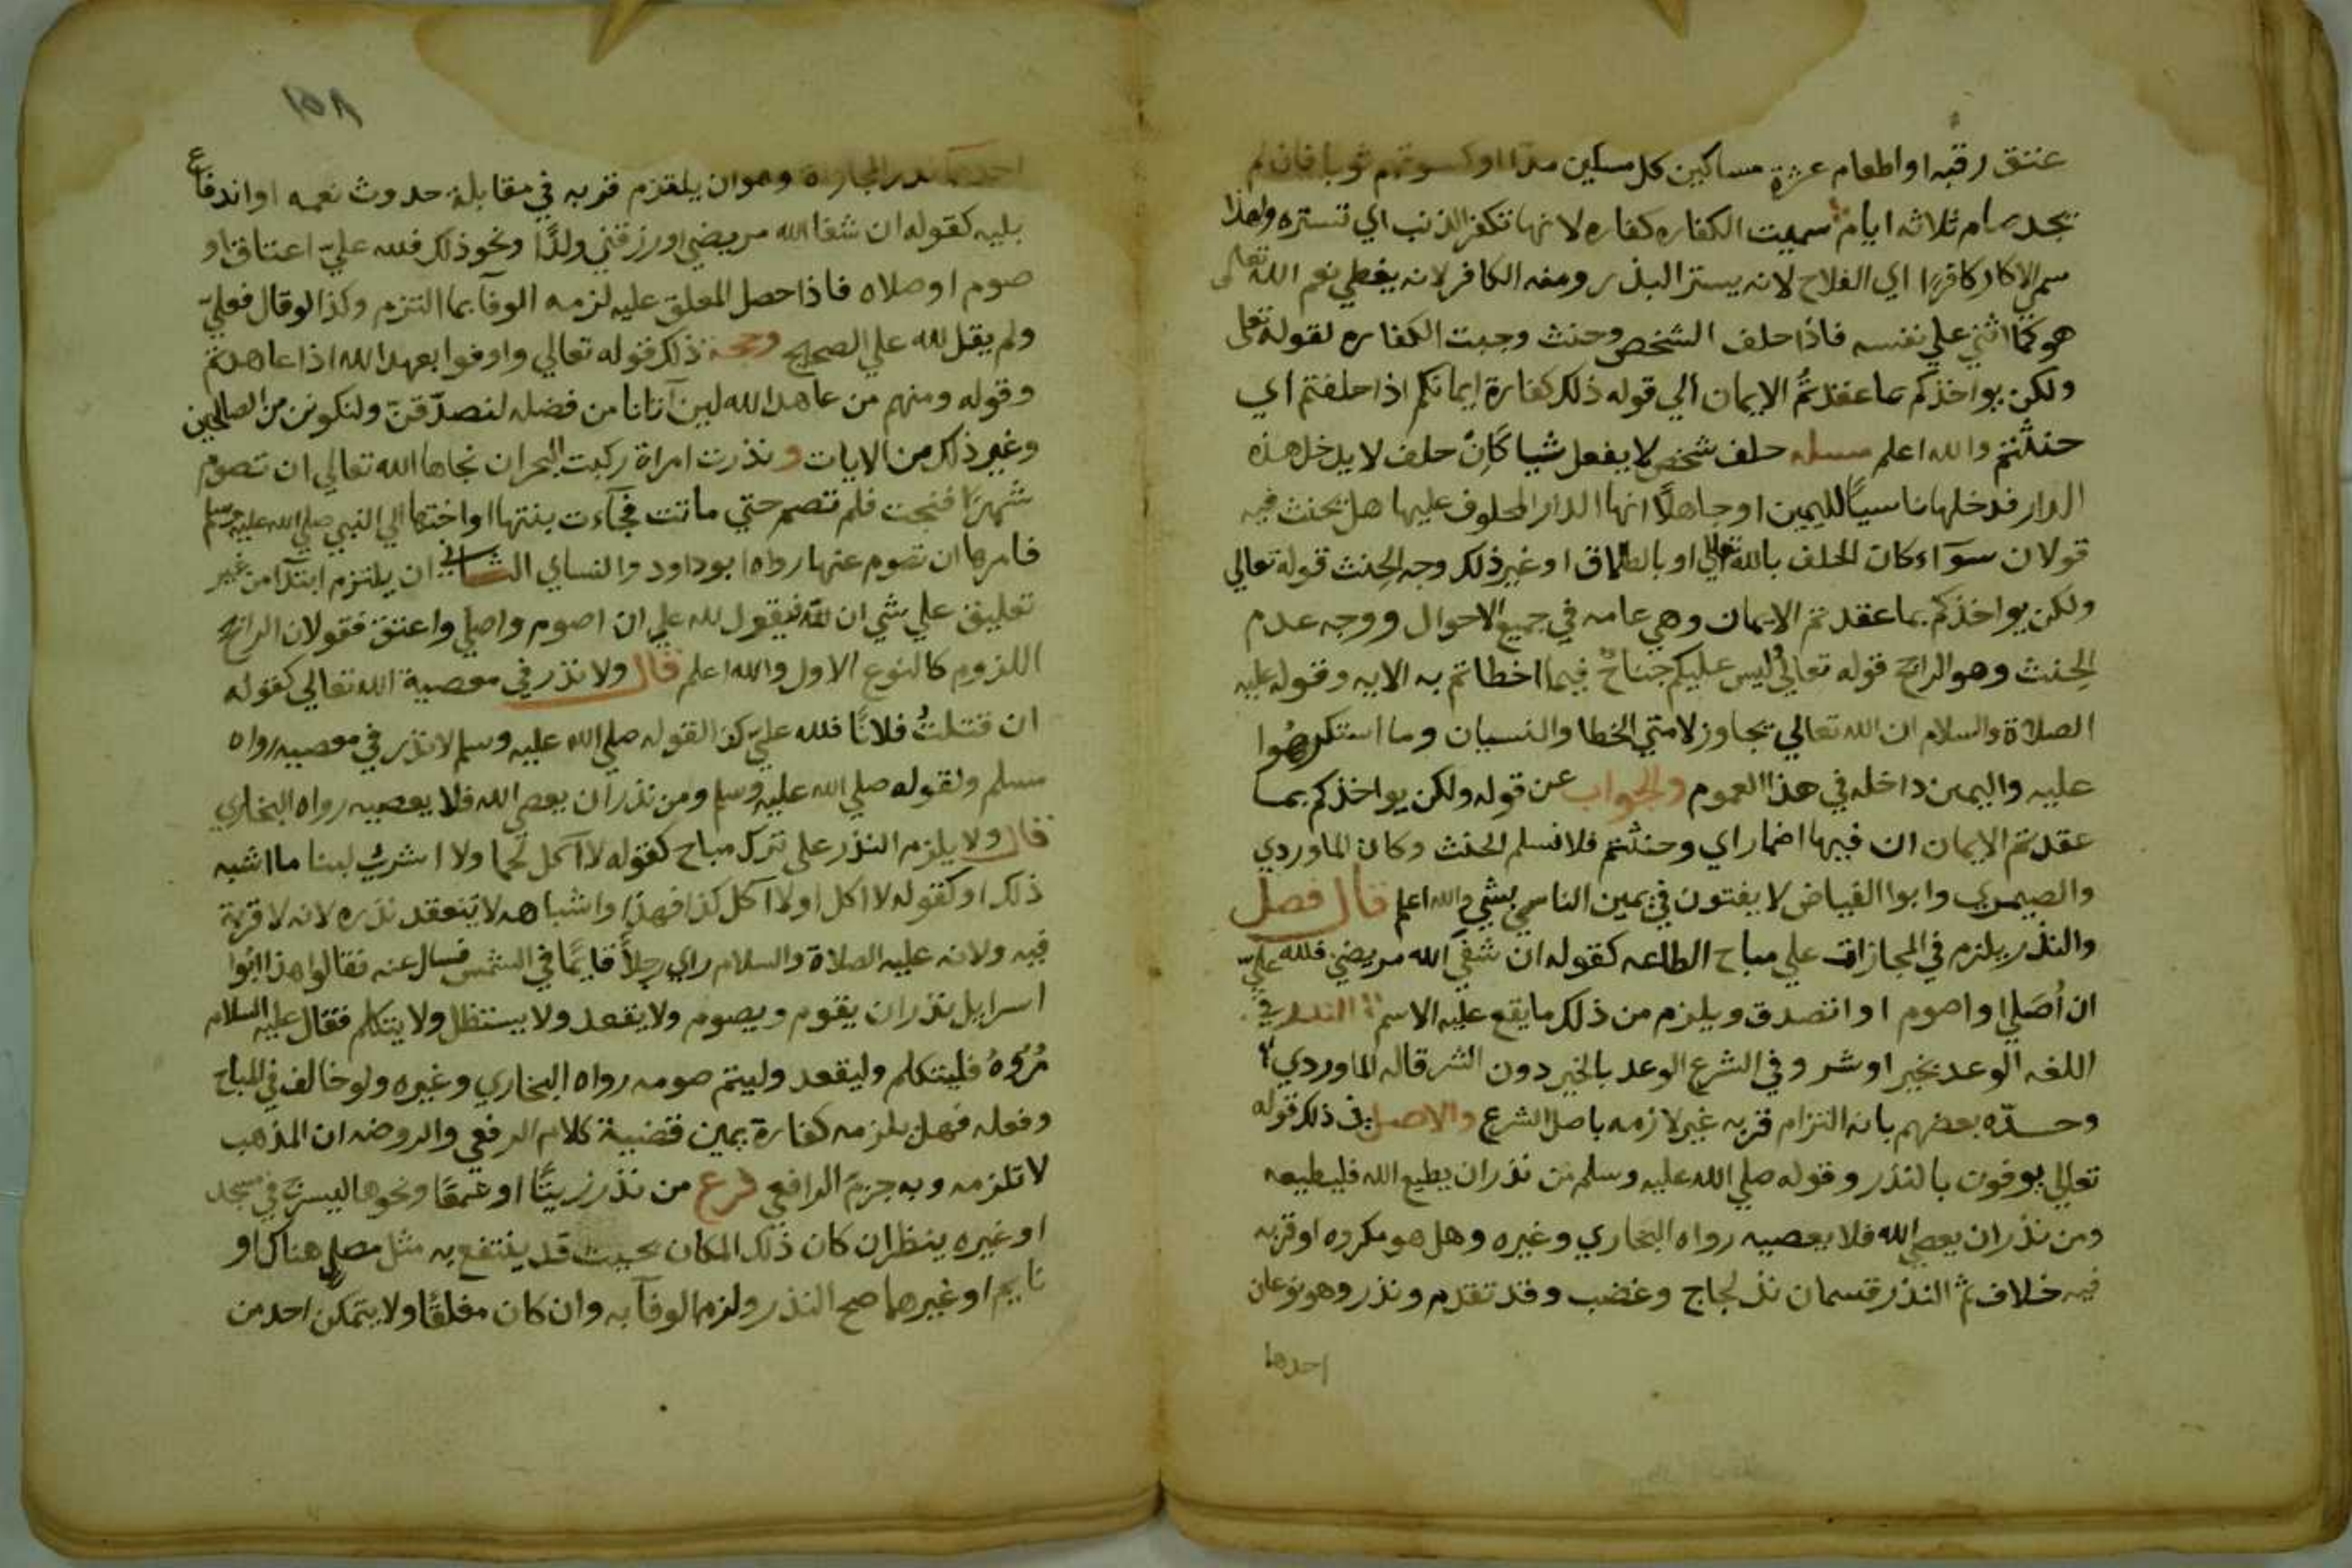 عتق رقبه او اطعام عشرة مساكين كل مسكين مدا او كسوتهم ثوبا فان لم
يجد صام ثلاثه ايام سميت الكفاره كفاره لانها تكفر الذنب اي تستره ولهذا
سمي الاكار كافرًا اي الفلاح لانه يستر البذر ومنه الكافر لانه يغطي نعم الله تعالى
هو كما اثني علي نفسه فاذا حلف الشخص وحنث وجبت الكفاره لقوله تعالى
ولكن يواخذكم بما عقدتمُ الايمان الي قوله ذلك كفارة ايمانكم اذا حلفتم اي
حنثتم والله اعلم مسله حلف شخص لا يفعل شيا كان حلف لا يدخل هذه
الدار فدخلها ناسياً لليمين او جاهلًا انها الدار المحلوف عليها هل يحنث فيه
قولان سوآء كان الحلف بالله تعالي او بالطلاق او غير ذلك وجه الحنث قوله تعالي
ولكن يواخذكم بما عقدتم الايمان وهي عامه في جميع الاحوال ووجه عدم
الحنث وهو الراجح قوله تعالي ليس عليكم جناحٌ فيما اخطاتم به الايه وقوله عليه
الصلاة والسلام ان الله تعالي تجاوز لامتي الخطا والنسيان وما استكرهُوا
عليه واليمين داخله في هذا العموم والجواب عن قوله ولكن يواخذكم بما
عقدتم الايمان ان فيها اضمار اي وحنثتم فلا نسلم الحنث وكان الماوردي
والصيمري وابوا الفياض لا يفتون في يمين الناسي بشي والله اعلم قال فصل
والنذر يلزم في المجازات علي مباح الطاعه كقوله ان شفي الله مريضي فلله عليّ
ان اُصَلي او اصوم او اتصدق ويلزم من ذلك ما يقع عليه الاسم النذر في
اللغه الوعد بخير او شر وفي الشرع الوعد بالخير دون الشر قاله الماوردي
وحدّه بعضهم بانه التزام قربه غير لازمه باصل الشرع والاصل في ذلك قوله
تعالي يوفون بالنذر وقوله صلي الله عليه وسلم من نذر ان يطيع الله فليطيعه
ومن نذر ان يعصي الله فلا يعصيه رواه البخاري وغيره وهل هو مكروه او قربه
فيه خلاف ثم النذر قسمان نذر لجاج وغضب وقد تقدم ونذر وهو نوعان
احدها
١٥٨
احدهما نذر المجازاة وهو ان يلتزم قربه في مقابلة حدوث نعمه او اندفاع
بليه كقوله ان شفا الله مريضي او رزقني ولدًا ونحو ذلك فلله عليّ اعتاق او
صوم او صلاه فاذا حصل المعلق عليه لزمه الوفا بما التزم وكذا لو قال فعليّ
ولم يقل لله علي الصحيح وحجة ذلك قوله تعالي واوفوا بعهد الله اذا عاهدتم
وقوله ومنهم من عاهد الله لين آتانا من فضله لنصدّقنّ ولنكونن من الصالحين
وغير ذلك من الايات و نذرت امراة ركبت البحر ان نجاها الله تعالي ان تصوم
شهرًا فنجت فلم تصم حتي ماتت فجآءت بنتها او اختها الي النبي صلي الله عليه وسلم
فامرها ان تصوم عنها رواه ابو داود والنساي الثاني ان يلتزم ابتدآ من غير
تعليق علي شي ان لله فيقول لله علي ان اصوم واصلي واعتق فقولان الراجح
اللزوم كالنوع الاول والله اعلم قال ولا نذر في معصية الله تعالي كقوله
ان قتلتُ فلانًا فلله عليّ كذا لقوله صلي الله عليه وسلم لا نذر في معصيه رواه
مسلم ولقوله صلي الله عليه وسلم ومن نذر ان يعصي الله فلا يعصيه رواه البخاري
قال ولا يلزم النذر علي ترك مباح كقوله لا آكل لحما ولا اشرب لبنا ما اشبه
ذلك او كقوله لا اكل او لا آكل كذا فهذا واشباهه لا ينعقد نذره لانه لا قربة
فيه ولانه عليه الصلاة والسلام راي رجلاً قايمًا في الشمس فسال عنه فقالوا هذا ابُوا
اسرايل نذر ان يقوم ويصوم ولا يقعد ولا يستظل ولا يتكلم فقال عليه السلام
مُرُوهُ فليتكلم وليقعد وليتم صومه رواه البخاري وغيره ولو خالف في المباح
وفعله فهل يلزمه كفارة يمين قضية كلام الرفعي والروضه ان المذهب
لا تلزمه وبه جزم الرافعي فرع من نذر زيتًا او شمعًا ونحوها ليسرج في مسجد
او غيره ينظر ان كان ذلك المكان بحيث قد ينتفع به مثل مصلي هناك او
نايم او غيرهما صح النذر ولزم الوفآ به وان كان مغلقًا ولا يتمكن احد من